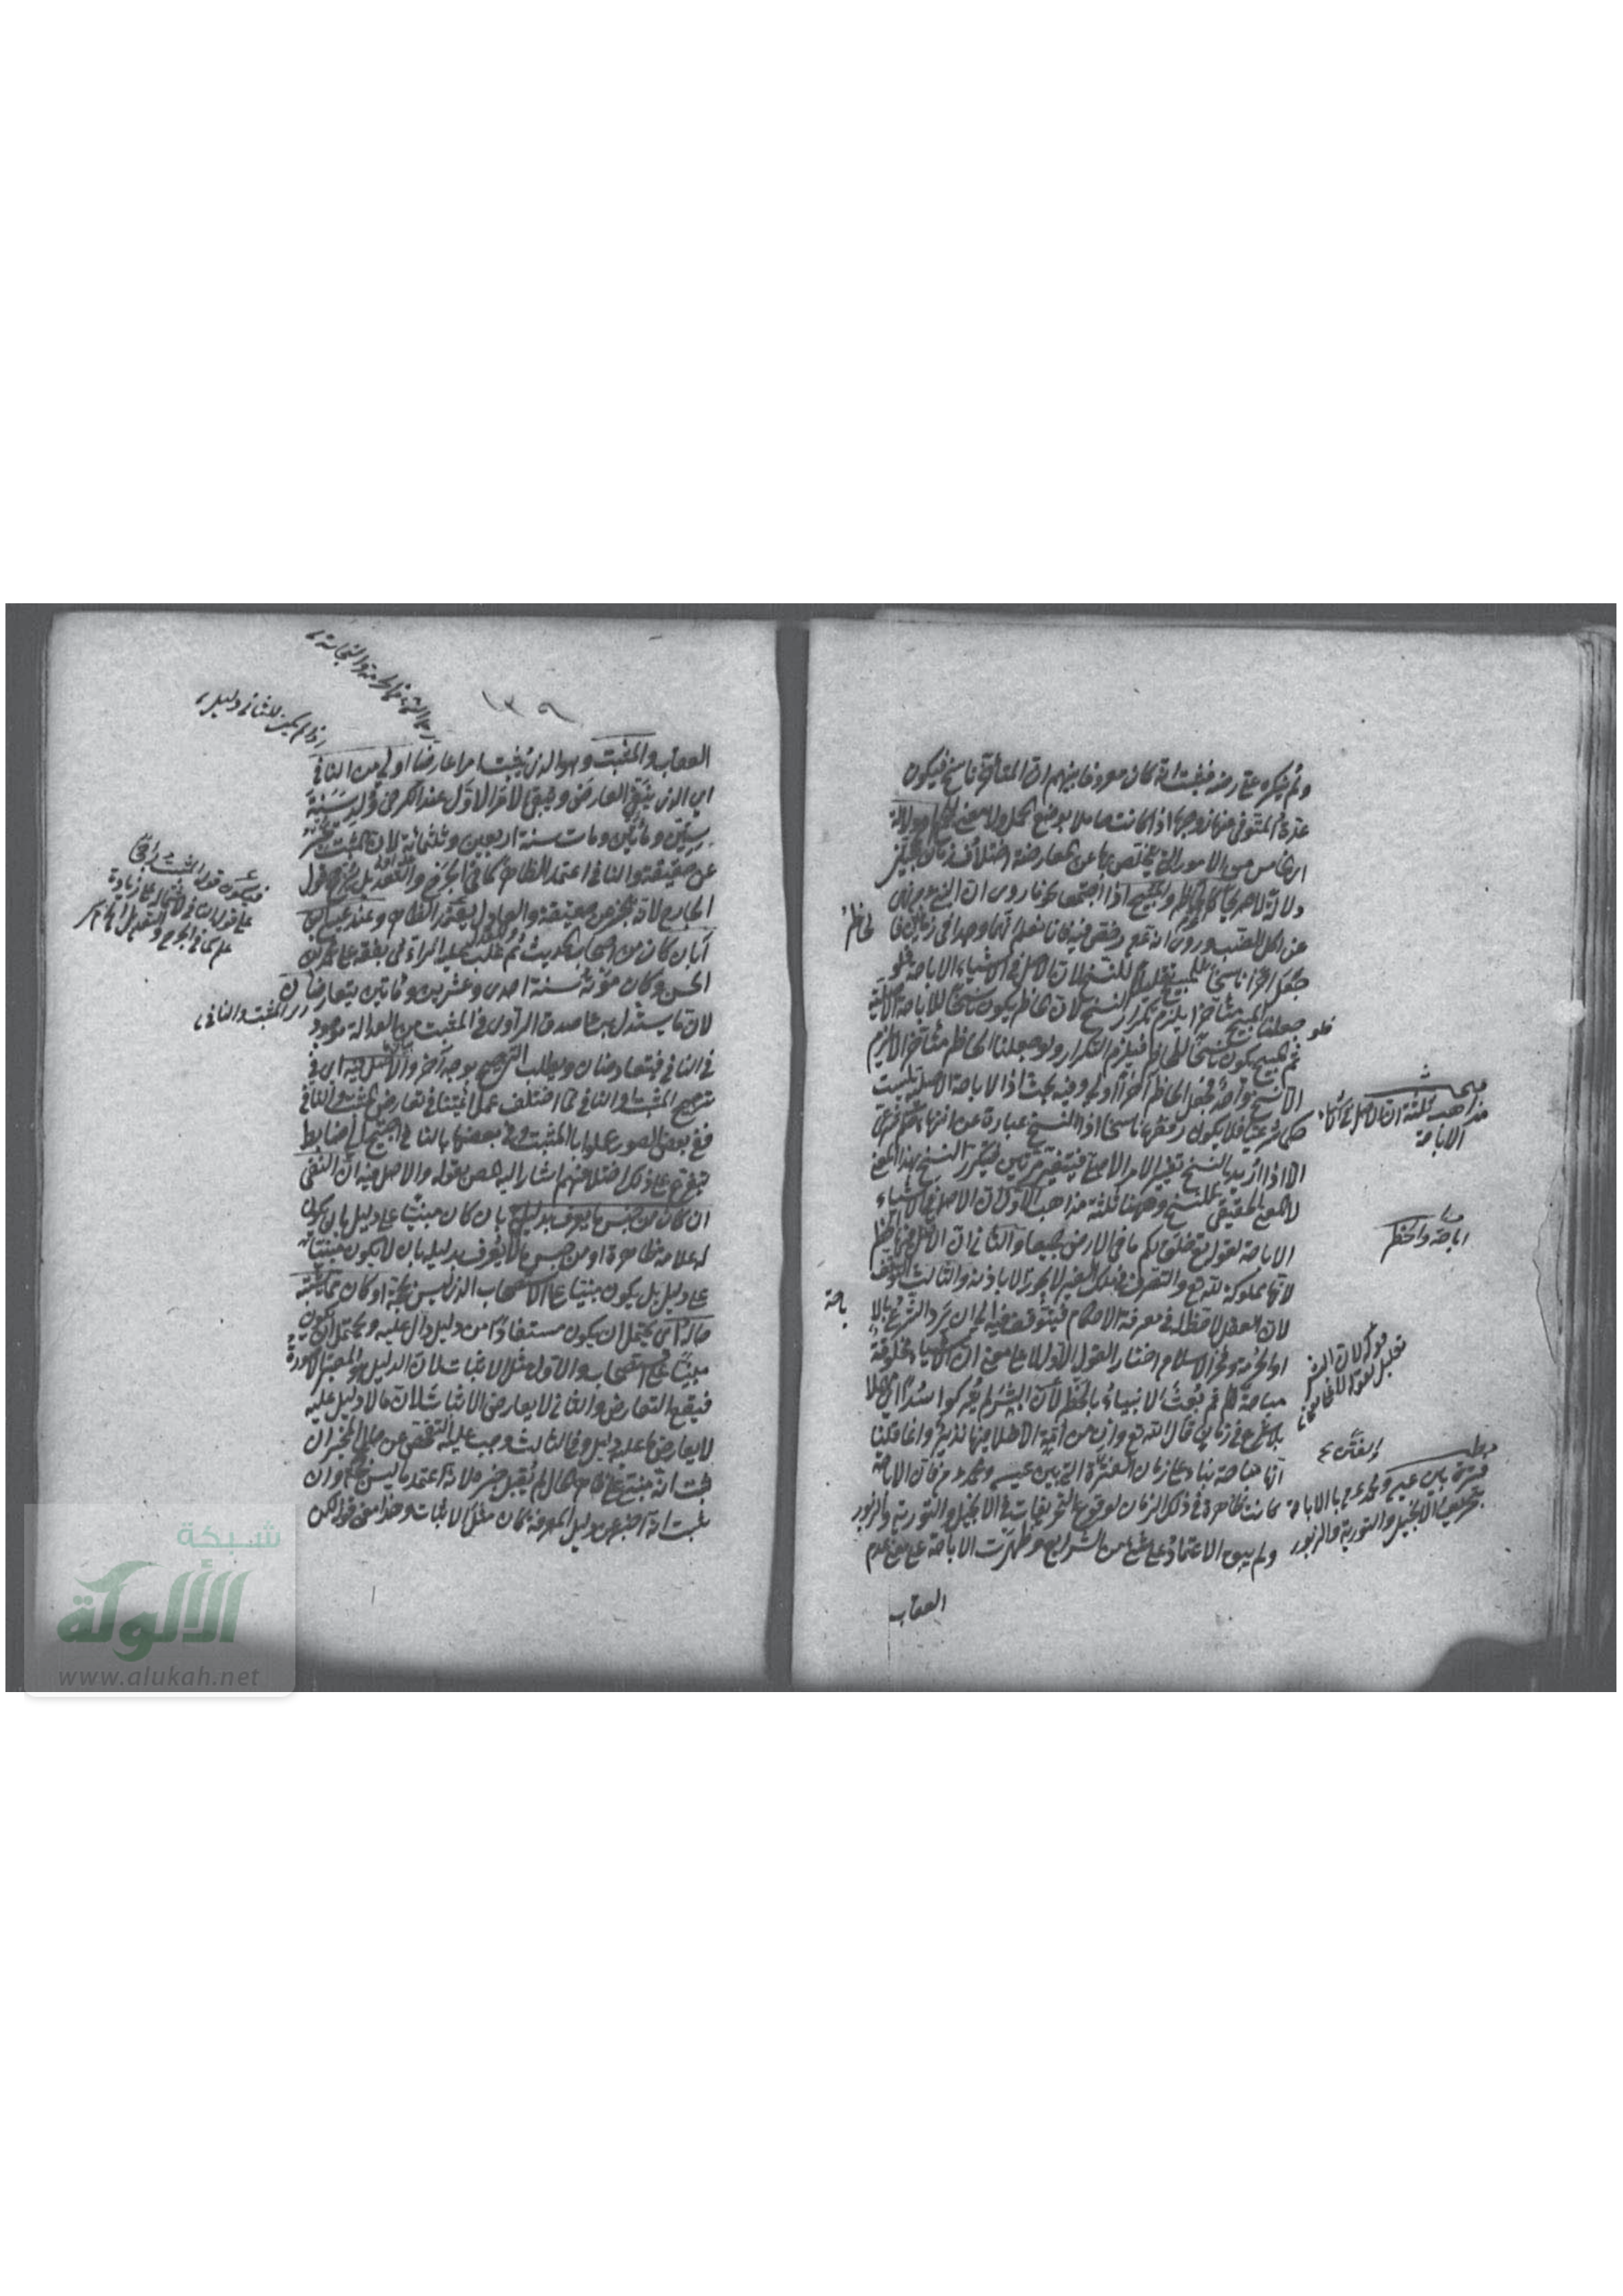 ولم ينكره على رضه فثبت انه كان معروفا بينهم ان المتأخر ناسخ فيكون
عدة المتوفى عنها زوجها اذا كانت حاملا بوضع الحمل
الخامس من الامور التي يتخلص بها عن المعارضة اختلاف زمان
دلالة لا صريحا كالحاظر والمبيح اذا اجتمعا كما روى ان النبي عم نهى
عن اكل الضب وروى انه عم رخص فيه فانا نعلم انهما وجدا في زمانين فا
لحاظر
جعل آخرا ناسخا للمبيح تقليلا للنسخ لان الاصل في الاشياء الاباحة فلو
جعلنا المبيح متأخرا يلزم تكرار النسخ لان الحاظر يكون ناسخا للاباحة الاصلية
ثم المبيح يكون ناسخا للحاظر فيلزم التكرار ولو جعلنا الحاظر متأخرا لا يلزم
الا نسخ واحد فجعل الحاظر آخرا اولى وفيه بحث اذ الاباحة الاصلية ليست
حكما شرعيا فلا يكون رفعها ناسخا اذ النسخ عبارة عن انتهاء حكم شرعي
الا اذا اريد بالنسخ تغيير الامر الاصلي فيتغير مرتين فيتكرر النسخ بهذا المعنى
لا بمعنى الحقيقي للنسخ وههنا ثلثة مذاهب الاول ان الاصل في الاشياء
الاباحة لقوله تع خلق لكم ما في الارض جميعا والثاني ان الاصل فيها الحظر
لانها مملوكة لله تع والتصرف في ملك الغير لا يجوز الا باذنه والثالث التوقف
لان العقل لا حظ له في معرفة الاحكام فيتوقف فيه الى ان يرد الشرع بالا
باحة
او الحرمة وفخر الاسلام اختار القول الاول لا على معنى ان الاشياء مخلوقة
مباحة ثم بعث الانبياء بالحظر لان البشر لم يتركوا سدى اى مهملا
بلا شرع في زمان قال الله تع وان من امة الا خلا فيها نذير وانما قلنا
انها مباحة بناء على زمان الفترة التي بين عيسى ومحمد عم فان الاباحة
كانت ظاهرة في ذلك الزمان لوقوع التحريفات في الانجيل والتورية والزبور
ولم يبق الاعتماد على شئ من الشرايع وظهرت الاباحة على معنى عدم
العقاب
مبحث
مذاهب ثلثة ان الاصل في الاشياء
الاباحة
اباحة والحظر
قوله لان البشر
تعليل لقوله لا على معنى
مطلب
فترة بين عيسى ومحمد عم بالاباحة
بتحريف الانجيل والتورية والزبور
١٣٩
اذا لم يكن للثاني دليل
العقاب والمثبت وهو الذي يثبت امرا عارضا اولى من النافى
اى الذى ينفى العارض ويبقى الامر الاول عند الكرخى ولد سنة
ستين ومأتين ومات سنة اربعين وثلثمائة لان المثبت مخبر
عن حقيقة والنافى اعتمد الظاهر كما في الجرح والتعديل يرجح قول
الجارح لانه مخبر عن حقيقة والمعدل يعتمد الظاهر وعند عيسى بن
ابان كان من اصحاب الحديث ثم غلب عليه الرأى تفقه على محمد بن
الحسن وكان موته سنة احدى وعشرين ومأتين يتعارضان
لان ما يستدل به على صدق الراوى في المثبت من العدالة موجود
في النافى فيتعارضان ويطلب الترجيح بوجه آخر والاصل فيه اى في
ترجيح المثبت والنافى لما اختلف عمل ائمتنا في تعارض المثبت والنافى
ففى بعض الصور عملوا بالمثبت وفى بعضها بالنافى احتيج الى ضابط
يتفرع على ذلك اختلافهم اشار اليه المص بقوله والاصل فيه ان النفى
ان كان من جنس ما يعرف بدليله بان كان مبنيا على دليل بان يكون
له علامة ظاهرة او من جنس ما لا يعرف بدليله بان لا يكون مبنيا
على دليل بل يكون مبنيا على الاستصحاب الذى ليس بحجة او كان مما يشتبه
حاله اى يحتمل ان يكون مستفادا من دليل دال عليه ويحتمل ان يكون
مبنيا على استصحاب والاول مثل الاثبات لان الدليل هو المعتبر
فيقع التعارض والثانى لا يعارض الاثبات لان ما لا دليل عليه
لا يعارض ما عليه دليل وفى الثالث وجب عليه التفحص عن حال المخبر ان
ثبت انه مبنى على ظاهر الحال لم يقبل خبره لانه اعتمد ما ليس بحجة وان
ثبت انه اخبر عن دليل المعرفة كان مثل الاثبات وهذا معنى قوله لكن
فيكون قول المثبت راجحا
على قول النافى لاشتماله على زيادة
علم كما في الجرح والتعديل
اى المثبت والنافى
شبكة
الألوكة
www.alukah.net